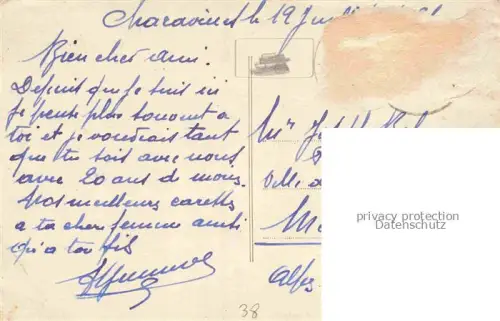 Charavines le 19 Juillet
Bien cher ami.
Depuit que je suis ici
je pense plus souvent a
toi et je voudrais tant
que tu sois avec nous
avec 20 ans de moins.
Nos meilleurs
a ta cher femme ainsi
qu'a ton fils
Mr
Villa
privacy protection
Datenschutz
Alpes
38